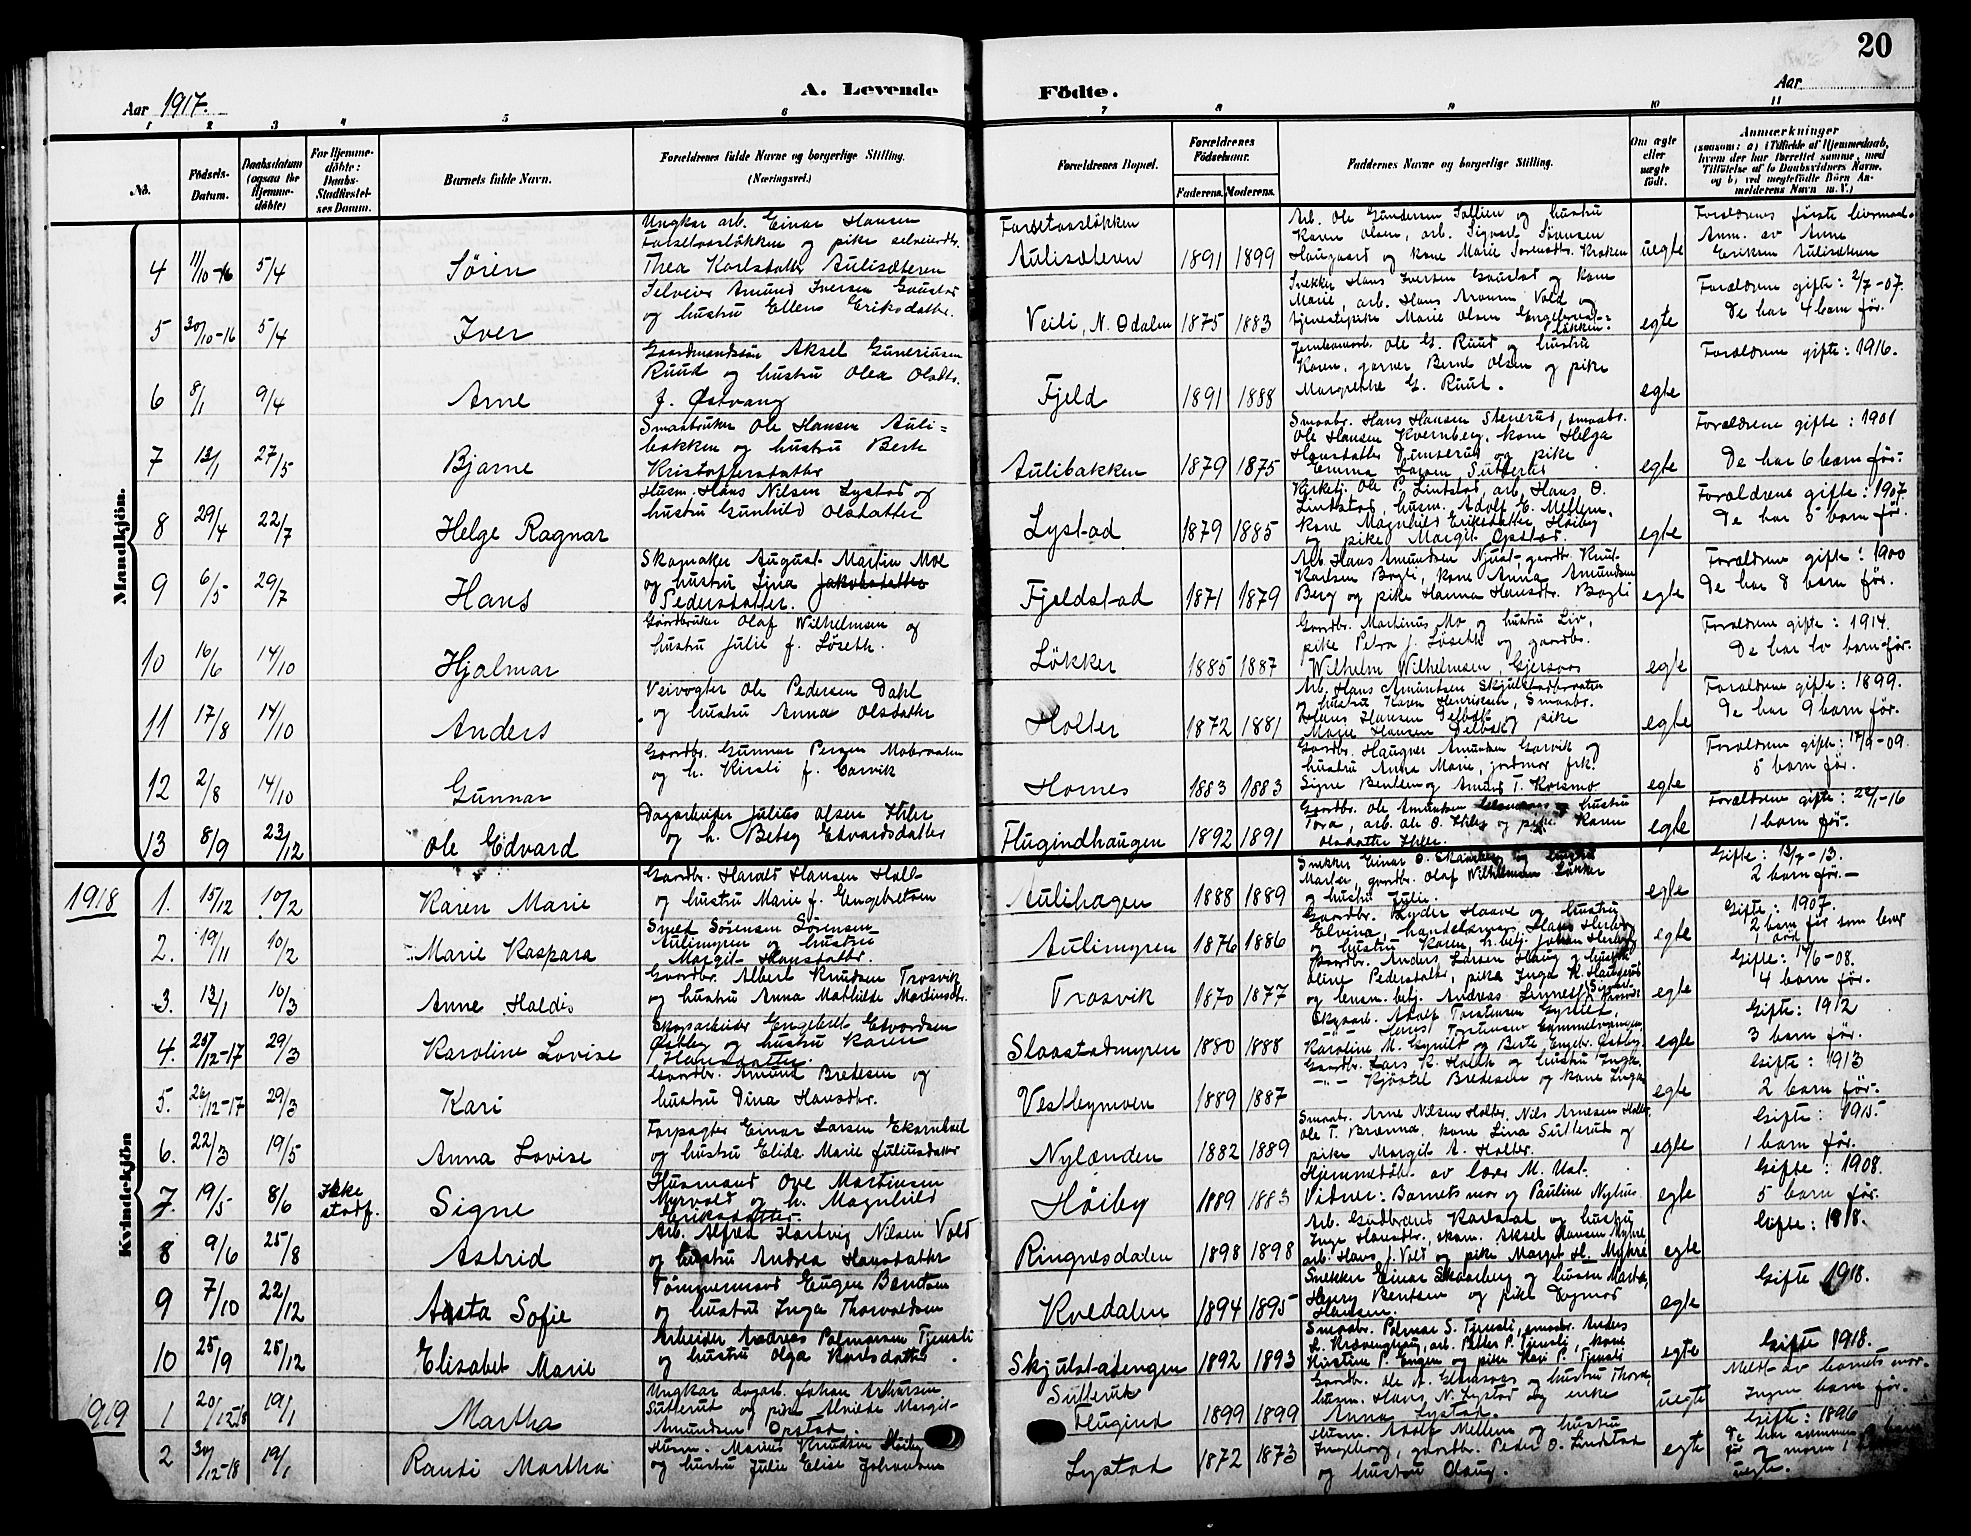 20
Aar 1917.
A. Levende Födte.
Aar
1 2 3 4 5 6 7 8 9 10 11
No.
Födsels-Datum.
Daabsdatum (ogsaa for Hjemme-döbte)
For Hjemme-döbte: Daabs-Stadfæstel-ses Datum.
Barnets fulde Navn.
Forældrenes fulde Navne og borgerlige Stilling. (Næringsvei.)
Forældrenes Bopæl.
Forældrenes Födselsaar.
Faderens. Moderens.
Faddernes Navne og borgerlige Stilling.
Om ægte eller uægte födt.
Anmærkninger
(saasom: a) i Tilfælde af Hjemmedaab, hvem der har forrettet samme, med Tilföielse af to Daabsvidners Navne, og b) ved uægtefödte Börn Anmelderens Navn m. V.)
Mandkjön.
4 11/10-16 5/4 Sören
Ungkar arb. Einar Hansen
og pike selveierdtr.
Thea Karlsdatter Aulisæteren
Aulisæteren 1891 1899
Arb. Ole Gundersen og hustru
Karen Olsen, arb. Sigvart Sörensen
Haugaard og kone Marie
uegte
Forældrenes förste leiermaal.
Anm. av Anne
Eriksen Aulisæteren
5 30/10-16 5/4 Iver
Selveier Amund Iversen Gaustad
og hustru Ellen Eriksdatter.
Veili, N. Odalen 1875 1883
Snekker Hans Iversen Gaustad og kone
Marie, arb. Hans Vold og
tjenestepike Marie Olsen
egte
Forældrene gifte: 2/7-07.
De har 4 barn för.
6 8/1 9/4 Arne
Gaardmandssön Aksel Guneriusen
Ruud og hustru Olea Olsdtr.
f. Østvang
Fjeld 1891 1888
Ole G. Ruud og hustru
Karen, Bernt Olsen og pike
Margrethe G. Ruud.
egte
Forældrene gifte: 1916.
7 12/1 27/5 Bjarne
Smaabruker Ole Hansen Auli=
bakken og hustru Berte
Kristoffersdatter
Aulibakken 1879 1875
Smaabr. Hans Hansen Stenerud, smaabr.
Ole Hansen Kvernberg, kone Helga
Hansdatter og pike
Emma Larsen Sutterud
egte
Forældrene gifte: 1901
De har 6 barn för.
8 29/4 22/7 Helge Ragnar
Husm. Hans Nilsen Lystad og
hustru Gunhild Olsdatter
Lystad 1879 1885
Kirketj. Ole P. Lindstad, arb. Hans O.
Lindstad, husm. Adolf E. Mellem,
kone Magnhild Eriksdatter Höiby
og pike Margit Opstad.
egte
Forældrene gifte: 1907
De har 5 barn för.
9 6/5 29/7 Hans
Skomaker August Martin Moe
og hustru Lina Jakobsdatter
Pedersdatter.
Fjeldstad 1871 1879
Arb. Hans Amundsen gaardbr. Knut
Karlsen Bogli, kone Anna Amundsen
Berg og pike Hanna Hansdtr. Bogli
egte
Forældrene gifte: 1900
De har 8 barn för.
10 16/6 14/10 Hjalmar
Gaardbruker Olaf Wilhelmsen og
hustru Julie f. Löseth.
Lökker 1885 1887
Gaardbr. Martinus Mo og hustru Liv,
pike Petra J. Löseth og gaardbr.
Wilhelm Wilhelmsen
egte
Forældrene gifte: 1914.
De har to barn för.
11 17/8 14/10 Anders
Veivogter Ole Pedersen Dahl
og hustru Anna Olsdatter
Holter 1872 1881
Arb. Hans Amundsen
og hustru Karen Henriksen, Smaabr.
Hans Hansen og pike
Marie Hansen
egte
Forældrene gifte: 1899.
De har 9 barn för.
12 2/8 14/10 Gunnar
Gaardbr. Gunnar Persen
og h. Kirsti f. Garvik
Hornes 1883 1883
Gaardbr. Haugner Amundsen Garvik og
hustru Anne Marie, jordmor frk.
Signe Berntsen og Amund T. Korsmo
egte
Forældrene gifte: 17/9-09.
5 barn för.
13 8/9 23/12 Ole Edvard
Dagarbeider Julius Olsen Ihler
og h. Betsy Edvardsdatter
Flugindhaugen 1892 1891
Gaardbr. Ole Amundsen og hustru
Tora, arb. Ole O. Ihler og pike Karen
Olsdatter Ihler.
egte
Forældrene gifte: 22/1-16
1 barn för.
1918
Kvindekjön
1. 15/12 10/2 Karen Marie
Gaardbr. Harald Hansen Holl
og hustru Marie f. Engebretsen
Aulihagen 1888 1889
Snekker Einar O. Skaarberg og hustru
Marta, gaardbr. Olaf Wilhelmsen Løkker
og hustru Julie.
egte
Gifte: 13/7-13.
2 barn för.
2. 19/11 10/2 Marie Kaspara
Smed Sørensen Sørensen
Aulimyren og hustru
Margit Hansdatter.
Aulimyren 1876 1886
Gaardbr. Lyder Haave og hustru
Elvina, handelsmann Hans Herberg
og hustru Karen, h.betj. Johan Herberg
egte
Gifte: 1907.
2 barn för som lever
1 död
3. 13/1 10/3 Anne Haldis
Gaardbr. Albert Knudsen Trosvik
og hustru Anna Mathilde Martinsdtr.
Trosvik 1870 1877
Gaardbr. Anders Larsen Haug og hustru
Oline Pedersdatter, pike Inga K. Haugerud
og lensm. betj. Andreas Linnes
egte
Gifte: 14/6-08.
4 barn för.
4. 25/12-17 29/3 Karoline Lovise
Skogsarbeider Engebret Edvardsen
Østby og hustru Karen
Hansdatter.
Slaastadmyren 1880 1888
Skogsarb. Adolf Torstensen
Karoline M. og Berte Engebr. Østby.
egte
Gifte: 1912
3 barn för
5. 26/12-17 29/3 Kari
Gaardbr. Amund Bredesen og
hustru Dina Hansdtr.
Vestbymoen 1889 1887
Gaardbr. Lars K. Holth og hustru Inga
-"- Kjöstel Bredesen og kone Inga
egte
Gifte: 1913
2 barn för.
6. 22/3 19/5 Anna Lovise
Forpagter Einar Larsen Ekornhol
og hustru Elida Marie Juliusdatter
Nylænden 1882 1889
Smaabr. Arne Nilsen Holter, Nils Arnesen Holter,
Ole T. Brænna, kone Lina Sutterud og
pike Margit A. Holter.
egte
Gifte: 1915
1 barn för.
7. 19/5 8/6 Ikke stadf. Signe
Husmand Ove Martinsen
Myrvold og h. Magnhild
Eriksdatter.
Höiby 1889 1883
Hjemmedöbt av lærer M. Ual.
Vidner: Barnets mor og Pauline Nyhus
egte
Gifte: 1908.
5 barn för.
8 9/6 25/8 Astrid
Arb. Alfred Hartvig Nilsen Vold
og hustru Andrea Hansdatter
Ringnesdalen 1898 1898
Arb. Gudbrand Karlstad og hustru
Inga Hansdtr., skom. Aksel Hansen Myhre,
arb. Hans J. Vold og pike Margit H. Myhre
egte
Gifte: 1918.
9 7/10 22/12 Aasta Sofie
Tömmermand Eugen Berntsen
og hustru Inga Thorvaldsen
Kvedalen 1894 1895
Snekker Einar Skaarberg og hustru Marta,
Henry Berntsen og pike Dagmar
Hansen.
egte
Gifte 1918.
10 25/9 25/12 Elisabet Marie
Arbeider Andreas Palmersen Tjensli
og hustru Olga Karlsdatter.
Skjulstadengen 1892 1893
Smaabr. Palmar S. Tjensli, smaabr. Anders
arb. Petter P. Tjensli, kone
Kristine P. Engen og pike Kari P. Tjensli
egte
Gifte 1918.
1919
1 20/12-18 19/1 Martha
Ungkar dagarb. Johan Arthursen
Sutterud og pike Alvilde Margit
Amundsen Opstad.
Sutterud
Flugind 1899 1899
Gaardbr. Ole A. og hustru Thora,
husm. Hans N. Lystad og enke
Anna Lystad.
uegte
Meldt av barnets mor.
Ingen barn för.
2 30/12-18 19/1 Randi Martha
Husm. Marius Knudsen Höiby
og hustru Julie Elise Johansen
Lystad 1872 1873
Husm. Adolf Mellem og hustru
Ingeborg, gaardbr. Peder O. Lindstad
og hustru Olaug.
egte
Gifte: 1896
De har sammen 9 barn
för og moren 1
uegte.